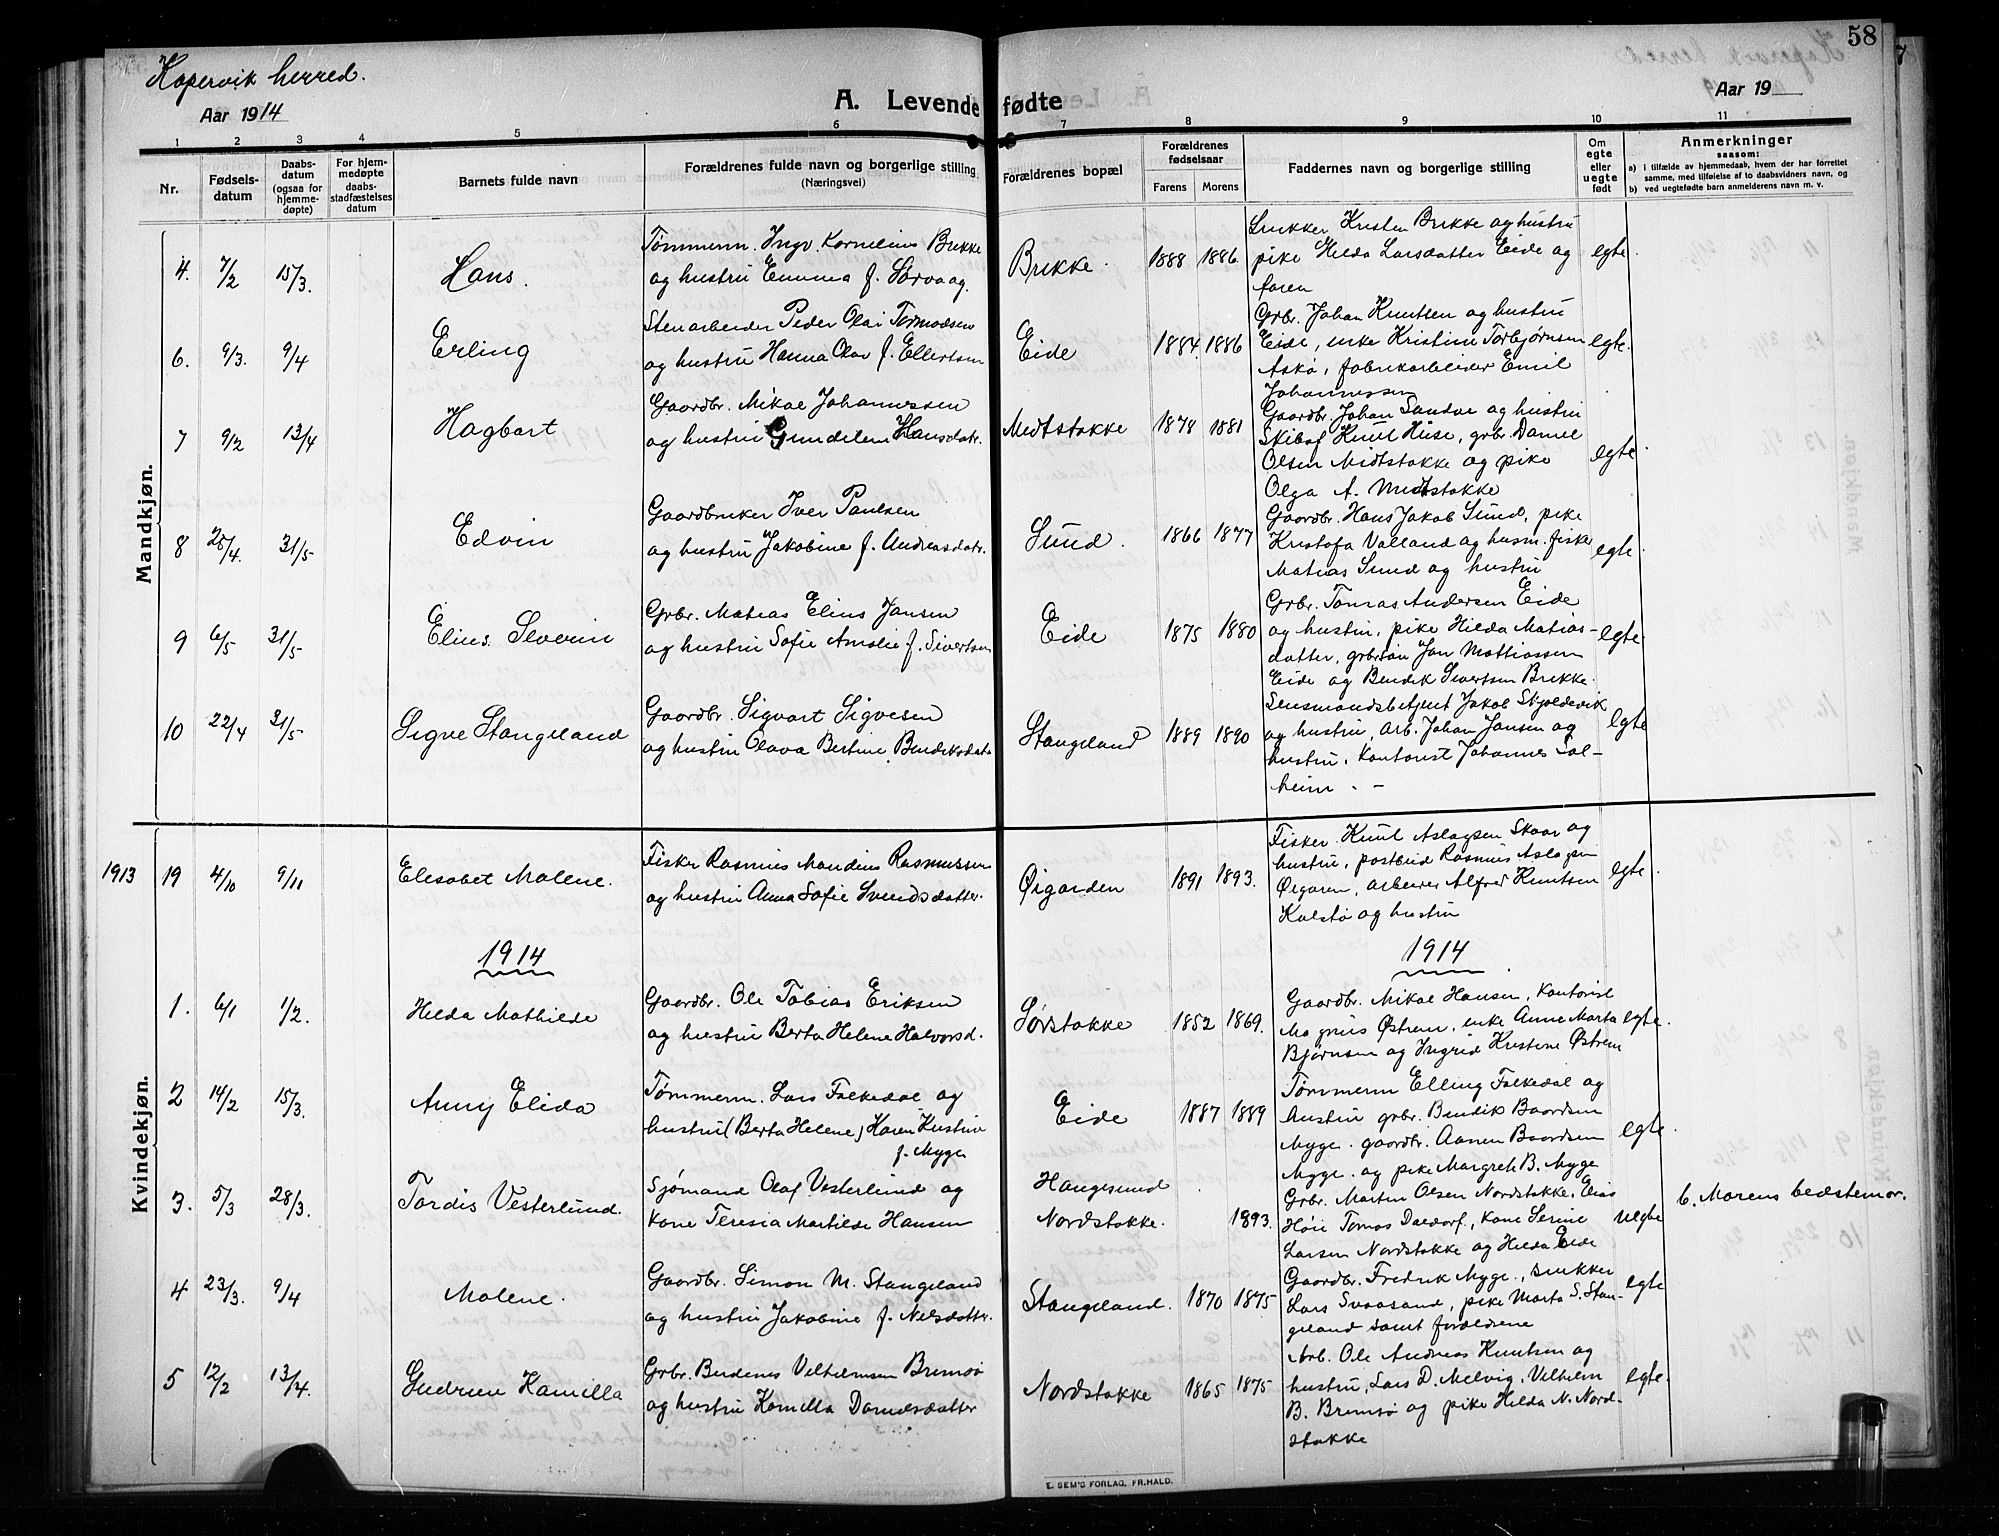 58
Kopervik herred.
Aar 1914
A. Levende fødte
Aar 19
1 2 3 4 5 6 7 8 9 10 11
Nr.
Fødsels-
datum
Daabs-
datum
(ogsaa for
hjemme-
døpte)
For hjem-
medøpte
daabs-
stadfæstelses
datum
Barnets fulde navn
Forældrenes fulde navn og borgerlige stilling
(Næringsvei)
Forældrenes bopæl
Forældrenes
fødselsaar
Farens Morens
Faddernes navn og borgerlige stilling
Om
egte
eller
uegte
født
Anmerkninger
saasom:
a) i tilfælde av hjemmedaab, hvem der har forrettet
samme, med tilføielse af to daabsvidners navn, og
b) ved uegtefødte barn anmelderens navn m. v.
Mandkjøn.
4. 7/2 15/3. Hans.
Tømmerm. Ingv. Kornelius Brekke
og hustru Emma f. Sørvaag.
Brekke. 1888 1886.
Snekker Kristen Brekke og hustru
pike Hilda Larsdatter Eide og
faren
egte.
6. 9/3. 9/4 Erling
Stenarbeider Peder Olai Tormodsen
og hustru Hanna Olav f. Ellertsen
Eide 1884 1886
Grbr. Johan Knutsen og hustru
Eide, enke Kristine Torbjørnsen
Askø, fabrikarbeider Emil
Johannessen
egte.
7 9/2 13/4 Hagbart
Gaardbr. Mikal Johannessen
og hustru Gundelena Hansdatr.
Midtstokke 1878 1881
Gaardbr. Johan Sandve og hustru
Skibsf Knut Hüse, grbr. Daniel
Olsen Midtstokke og pike
Olga A. Midtstokke
egte.
8 28/4. 31/5 Edvin
Gaardbruker Iver Paulsen
og hustru Jakobine f. Andreasdatr.
Sund. 1866 1877
Gaardbr. Hans Jakob Sund, pike
Kristofa Valland og husm. fisker
Matias Sund og hustru
egte.
9 6/5 31/5 Elius Severin
Grbr. Matias Elius Jansen
og hustru Sofie Amalie f. Sivertsen
Eide 1875 1880
Grbr. Tomas Andersen Eide
og hustru, pike Hilda Matias-
datter, grbrsøn Jan Mattiassen
Eide og Bendik Sivertsen Brekke.
egte.
10 22/4 31/5 Sigve Stangeland
Gaardbr. Sigvart Sigvesen
og hustru Olava Bertine Bendiksdatr
Stangeland 1889 1890
Lensmandsbetjent Jakob Skjoldevik
og hustru, Arb. Johan Jansen og
hustru, Kontorist Johannes Sol-
heim. -
egte
Kvindekjøn.
1913 19 4/10 9/11 Elesabet Malene.
Fisker Rasmus Mandius Rasmussen
og hustru Anna Sofie Svendsdatter.
Øigarden 1891 1893.
Fisker Knut Aslagsen Skaar og
hustru, postbud Rasmus Aslagsen
Øigaren, arbeider Alfred Knutsen
Kolstø og hustru
egte.
1914 1914
1. 6/1 1/2. Hilda Mathilde
Gaardbr. Ole Tobias Eriksen
og hustru Berta Helene Halvorsd.
Sørstokke 1852 1869.
Gaardbr. Mikal Hansen, Kontorist
Magnus Østrem, enke Anne Marta
Bjørnsen og Ingrid Kristine Østrem
egte.
2 14/2 15/3. Anny Elida
Tømmerm. Lars Falkedal og
hustru (Berta Helene) Karen Kristine
f. Myge
Eide 1887 1889
Tømmerm Elling Falkedal og
hustru grbr. Bendik Baardsen
Myge. gaardbr. Aanen Baardsen
Myge. og pike Margreth B. Myge
egte.
3. 5/3 28/3. Tordis Vesterlund.
Sjømand Olaf Vesterlund og
Kone Teresia Matilde Hansen
Haugesund
Nordstokke. 1893.
Grbr. Martin Olsen Nordstokke. Elias
Høie Tomas Daldorf, Kone Serine
Larsen Nordstokke og Hilda Eide
uegte
b. Morens bedstemor.
4 23/3. 9/4 Malene.
Gaardbr. Simon M. Stangeland
og hustru Jakobine f. Nilsdatter.
Stangeland. 1870 1875
Gaardbr. Fredrik Myge., snekker
Lars Svaasand, pike Marta S. Stan-
geland samt forældrene
egte
5 12/2 13/4. Gudrun Kamilla
Grbr. Berdenes Vilhelmsen Bremsø
og hustru Kamilla Danielsdatter
Nordstokke 1865 1875
Arb. Ole Andreas Knutsen og
hustru, Lars D. Melvig, Vilhelm
B. Bremsø og pike Hilda N. Nord-
stokke
egte.
E. SEM'S FORLAG, FR.HALD.